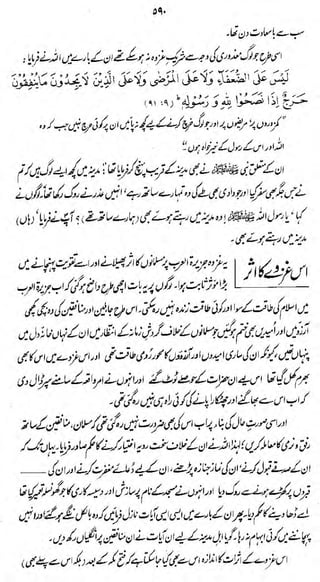 ۵۹۰
سب سے با سعادت دن تھا۔
اسی طرح جو لوگ معذوری کی وجہ سے شریکِ غزوہ نہ ہو سکے تھے ان کے بارے میں اللہ نے فرمایا:
لَيْسَ عَلَى الضُّعَفَاءِ وَلَا عَلَى الْمَرْضَىٰ وَلَا عَلَى الَّذِينَ لَا يَجِدُونَ مَا يُنفِقُونَ
حَرَجٌ إِذَا نَصَحُوا لِلَّهِ وَرَسُولِهِ (۹: ۹۱)
"کمزوروں پر، مریضوں پر اور جو لوگ خرچ کرنے کے لیے کچھ نہ پائیں ان پر کوئی حرج نہیں جب کہ وہ
اللہ اور اس کے رسول کے خیر خواہ ہوں۔"
ان کے متعلق نبی ﷺ نے بھی مدینہ کے قریب پہنچ کر فرمایا تھا: "مدینہ میں کچھ ایسے لوگ ہیں کہ تم
نے جس جگہ بھی سفر کیا اور جو وادی بھی طے کی وہ تمہارے ساتھ رہے، انہیں عذر نے روک رکھا تھا۔ لوگوں نے
کہا، "یا رسول اللہ ﷺ! وہ مدینہ میں رہتے ہوئے بھی (ہمارے ساتھ تھے)؟ آپ نے فرمایا (ہاں)
مدینہ میں رہتے ہوئے بھی۔
اس غزوے کا اثر یہ غزوہ جزیرۃ العرب پر مسلمانوں کا اثر پھیلانے اور اسے تقویت پہنچانے میں
بڑا مؤثر ثابت ہوا۔ لوگوں پر یہ بات اچھی طرح واضح ہو گئی کہ اب جزیرۃ العرب
میں اسلام کی طاقت کے سوا اور کوئی طاقت زندہ نہیں رہ سکتی۔ اس طرح جاہلین اور منافقین کی وہ بچی کھچی
آرزوئیں اور امیدیں بھی ختم ہو گئیں جو مسلمانوں کے خلاف گردشِ زمانہ کے انتظار میں ان کے نہاں خانۂ دل میں
پنہاں تھیں، کیونکہ ان کی ساری امیدوں اور آرزوؤں کا محور رومی طاقت تھی اور اس غزوے میں اس کا بھی
بھرم کھل گیا تھا اس لیے ان حضرات کے حوصلے ٹوٹ گئے اور انہوں نے امرِ واقعہ کے سامنے سپر ڈال دی
کہ اب اس سے بھاگنے اور چھٹکارا پانے کی کوئی راہ ہی نہیں رہ گئی تھی۔
اور اسی صورتِ حال کی بناء پر اب اس کی بھی ضرورت نہیں رہ گئی تھی کہ مسلمان، منافقین کے ساتھ
رفق و نرمی کا معاملہ کریں؛ لہٰذا اللہ نے ان کے خلاف سخت رویہ اختیار کرنے کا حکم صادر فرمایا۔ یہاں تک کہ
ان کے صدقے قبول کرنے، ان کی نمازِ جنازہ پڑھنے، ان کے لیے دُعائے مغفرت کرنے اور ان کی
قبروں پر کھڑے ہونے سے روک دیا اور انہوں نے مسجد کے نام پر سازش اور دسیسہ کاری کا جو گھونسلہ تعمیر کیا تھا
اسے ڈھا دینے کا حکم دیا۔ پھر ان کے بارے میں ایسی ایسی آیات نازل فرمائیں کہ وہ بالکل ننگے ہو گئے اور انہیں
پہچاننے میں کوئی ابہام نہ رہا، گویا اہلِ مدینہ کے لیے ان آیات نے ان منافقین پر انگلیاں رکھ دیں۔
اس غزوے کے اثرات کا اندازہ اس سے بھی کیا جا سکتا ہے کہ فتحِ مکہ کے بعد (بلکہ اس سے پہلے بھی)